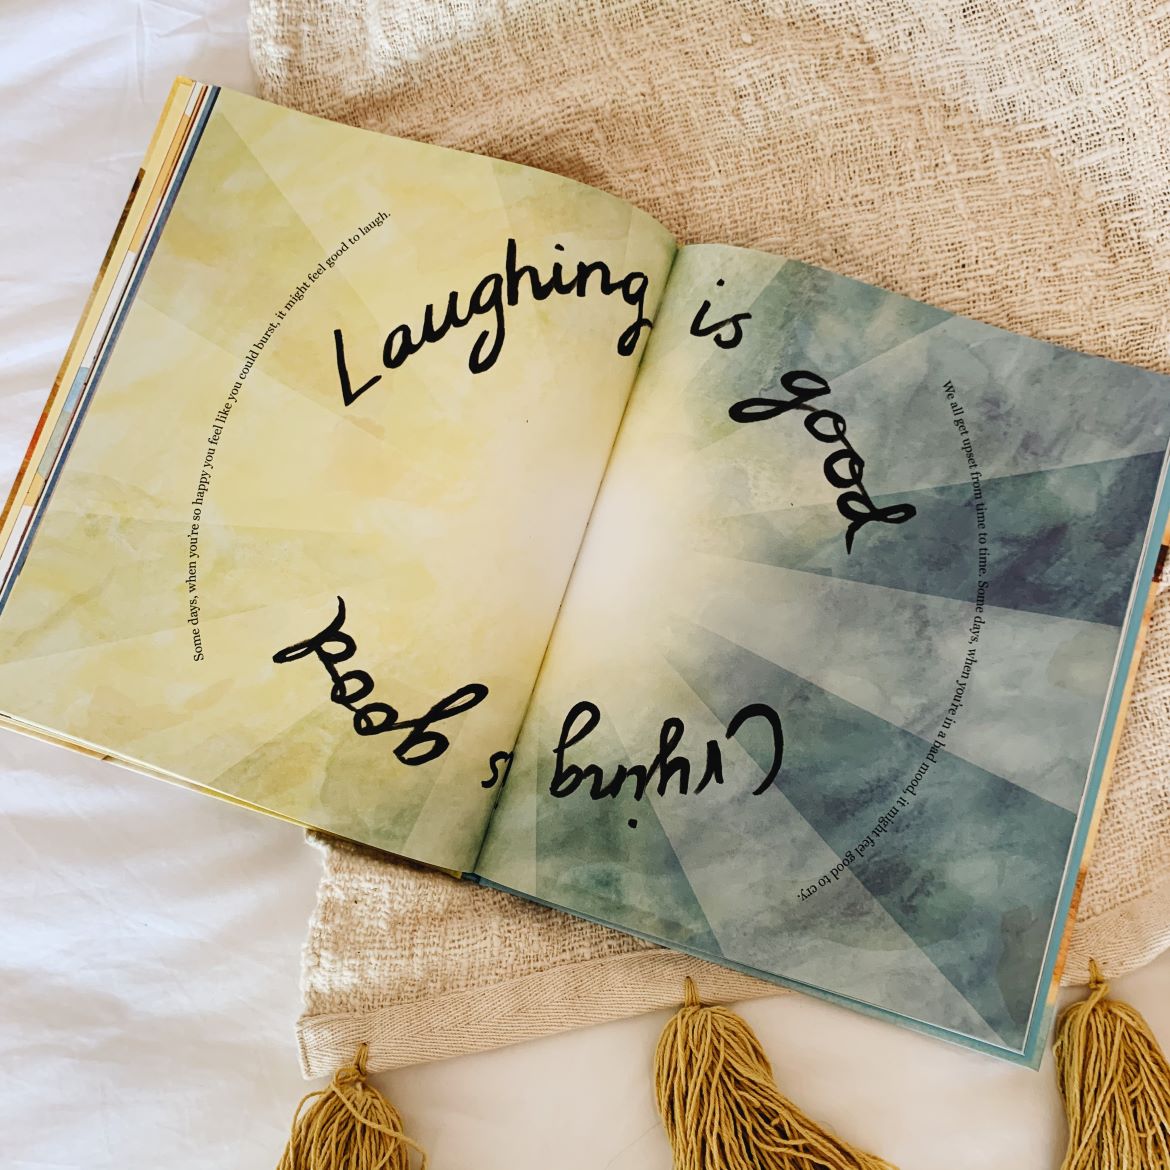 Some days, when you're so happy you feel like you could burst, it might feel good to laugh.
Laughing is good
We all get upset from time to time. Some days, when you're in a bad mood, it might feel good to cry.
Crying is good